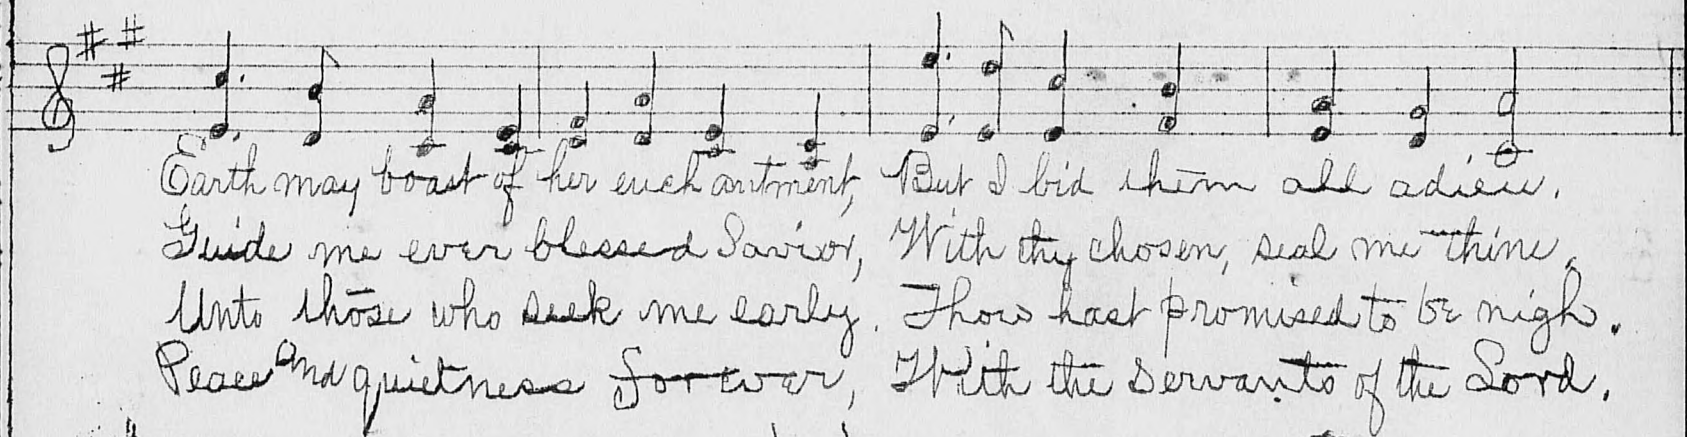 Earth may boast of her enchantment, But I bid them all adieu.
Guide me ever blessed Savior, With thy chosen, seal me thine.
Unto those who seek me early. Thou hast promised to be nigh.
Peace and quietness forever, With the servants of the Lord.